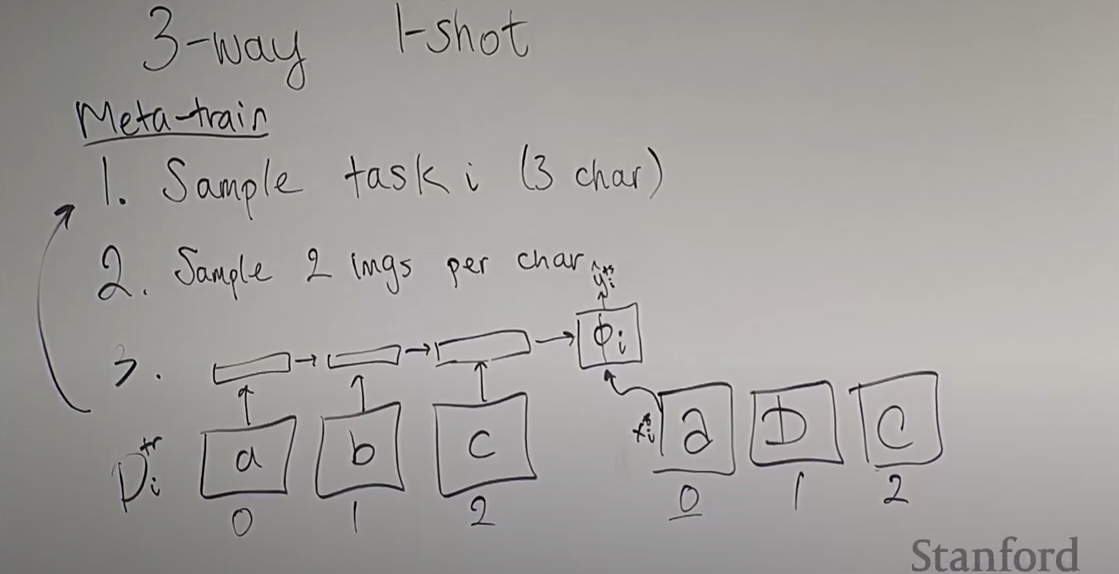 3-way 1-shot
Meta-train
1. Sample task i (3 char)
2. Sample 2 imgs per char
ŷᵢᵗˢ
3.
ϕᵢ
Dᵢᵗʳ a b c xᵢᵗˢ a D C
0 1 2 0 1 2
Stanford